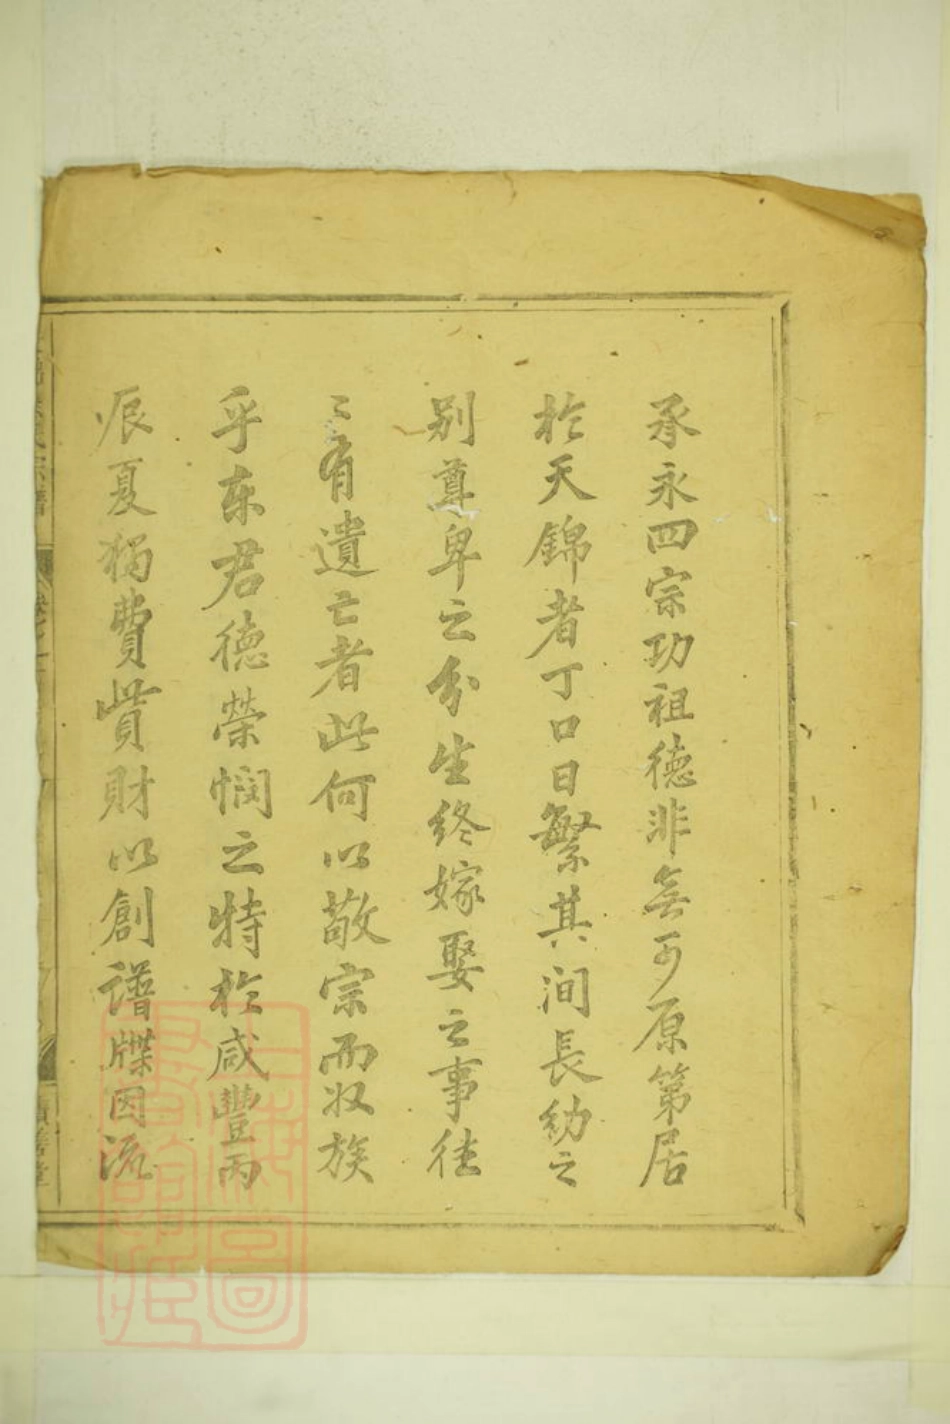 承永四宗功祖德非無可原第居
於天錦者丁口日繁其間長幼之
别尊卑之分生終嫁娶之事往
〻有遺亡者此何以敬宗而収族
乎东君德榮憫之特於咸豐丙
辰夏獨費貲財以創譜牒因流
宗譜
上海圖書館藏